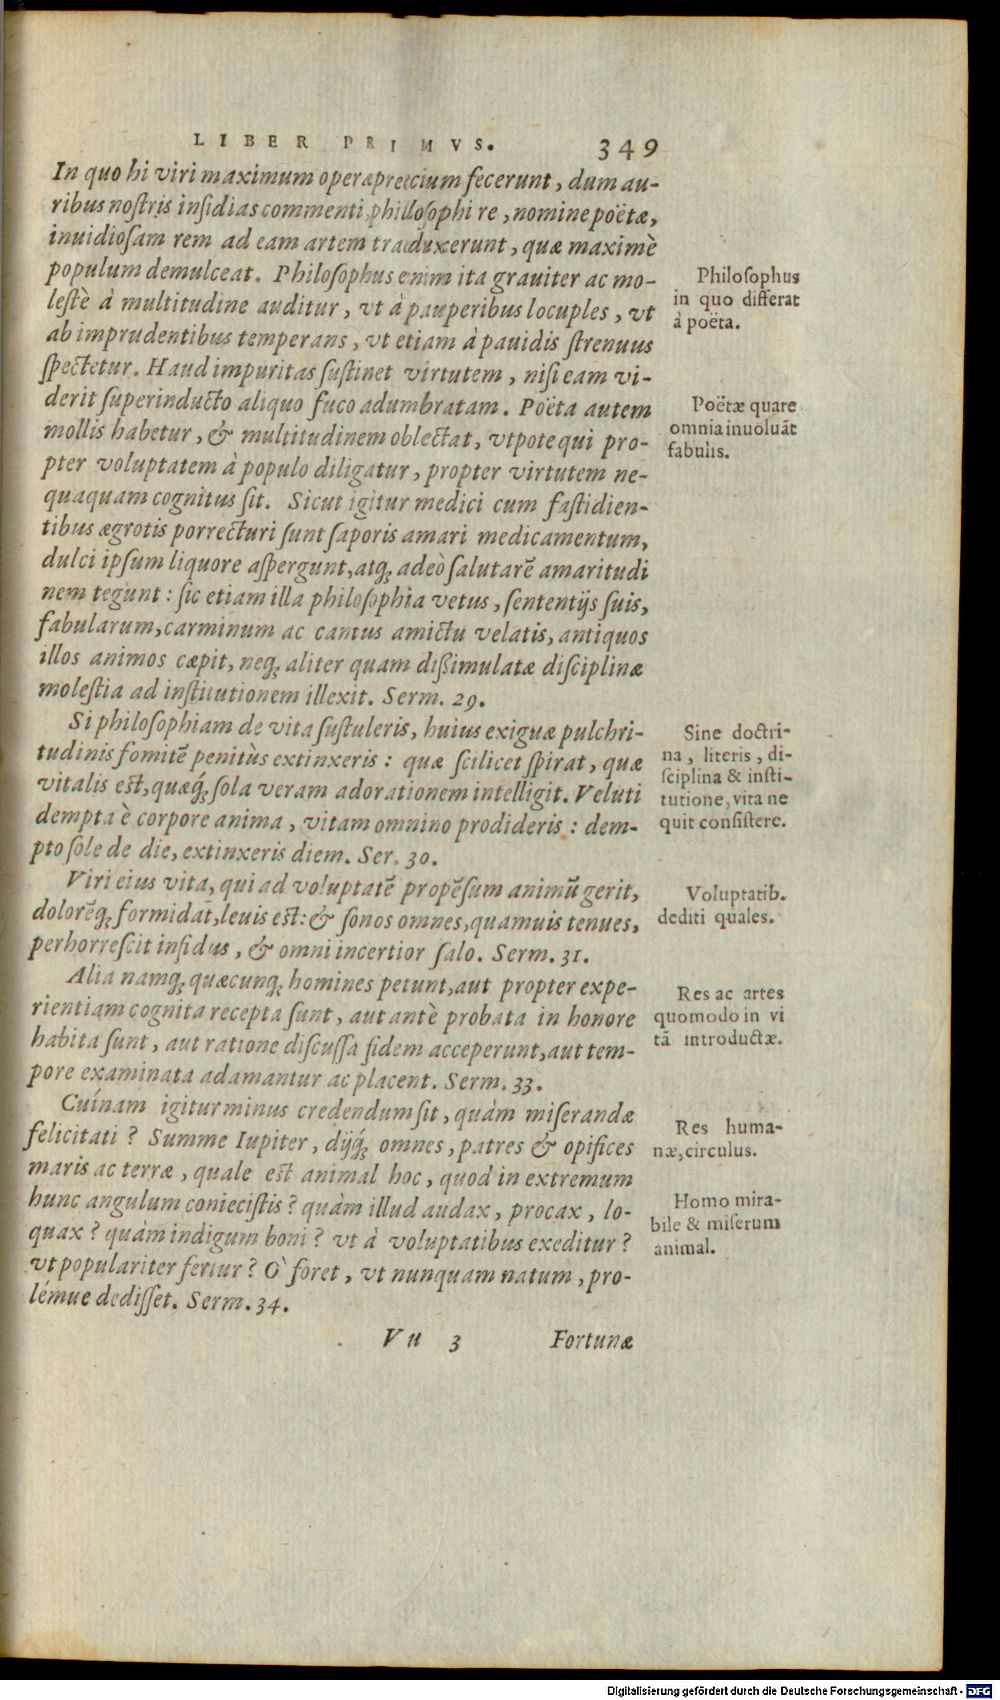 LIBER PRIMVS. 349
In quo hi viri maximum operæpretium fecerunt, dum au-
ribus nostris insidias commenti, philosophi re, nomine poëtæ,
inuidiosam rem ad eam artem traduxerunt, quæ maximè
populum demulceat. Philosophus enim ita grauiter ac mo-
lestè à multitudine auditur, vt à pauperibus locuples, vt
ab imprudentibus temperans, vt etiam à pauidis strenuus
spectetur. Haud impuritas sustinet virtutem, nisi eam vi-
derit superinducto aliquo fuco adumbratam. Poëta autem
mollis habetur, & multitudinem oblectat, vtpote qui pro-
pter voluptatem à populo diligatur, propter virtutem ne-
quaquam cognitus sit. Sicut igitur medici cum fastidien-
tibus ægrotis porrecturi sunt saporis amari medicamentum,
dulci ipsum liquore aspergunt, atq; adeò salutarē amaritudi
nem tegunt: sic etiam illa philosophia vetus, sententijs suis,
fabularum, carminum ac cantus amictu velatis, antiquos
illos animos cæpit, neq; aliter quam dißimulatæ disciplinæ
molestia ad institutionem illexit. Serm. 29.
Si philosophiam de vita sustuleris, huius exiguæ pulchri-
tudinis fomitē penitùs extinxeris: quæ scilicet spirat, quæ
vitalis est, quæq́; sola veram adorationem intelligit. Veluti
dempta è corpore anima, vitam omnino prodideris: dem-
pto sole de die, extinxeris diem. Ser. 30.
Viri eius vita, qui ad voluptatē propēsum animū gerit,
dolorēq; formidat, leuis est: & sonos omnes, quamuis tenues,
perhorrescit insidus, & omni incertior salo. Serm. 31.
Alia namq; quæcunq; homines petunt, aut propter expe-
rientiam cognita recepta sunt, aut antè probata in honore
habita sunt, aut ratione discussa fidem acceperunt, aut tem-
pore examinata adamantur ac placent. Serm. 33.
Cuínam igitur minus credendum sit, quàm miserandæ
felicitati? Summe Iupiter, dijq́; omnes, patres & opifices
maris ac terræ, quale est animal hoc, quod in extremum
hunc angulum coniecistis? quàm illud audax, procax, lo-
quax? quàm indigum boni? vt à voluptatibus exeditur?
vt populariter fertur? O` foret, vt nunquam natum, pro-
lémue dedisset. Serm. 34.
Vu 3 Fortunæ
Philosophus
in quo differat
à poëta.
Poëtæ quare
omnia inuoluāt
fabulis.
Sine doctri-
na, literis, di-
sciplina & insti-
tutione, vita ne
quit consistere.
Voluptatib.
dediti quales.
Res ac artes
quomodo in vi
tā introductæ.
Res huma-
næ, circulus.
Homo mira-
bile & miserum
animal.
Digitalisierung gefördert durch die Deutsche Forschungsgemeinschaft - DFG